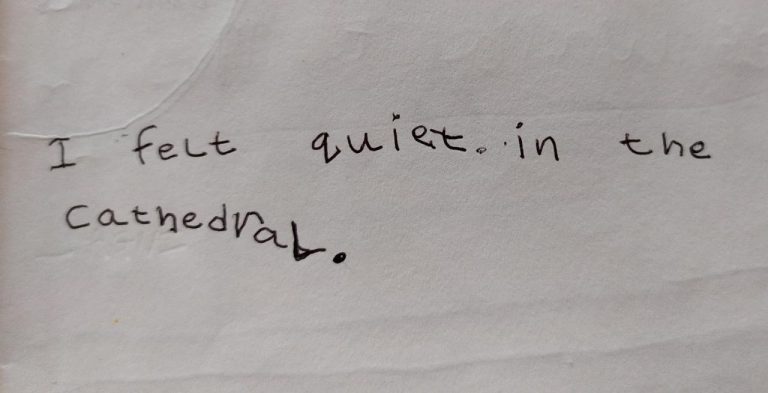 I felt quiet. in the
cathedral.